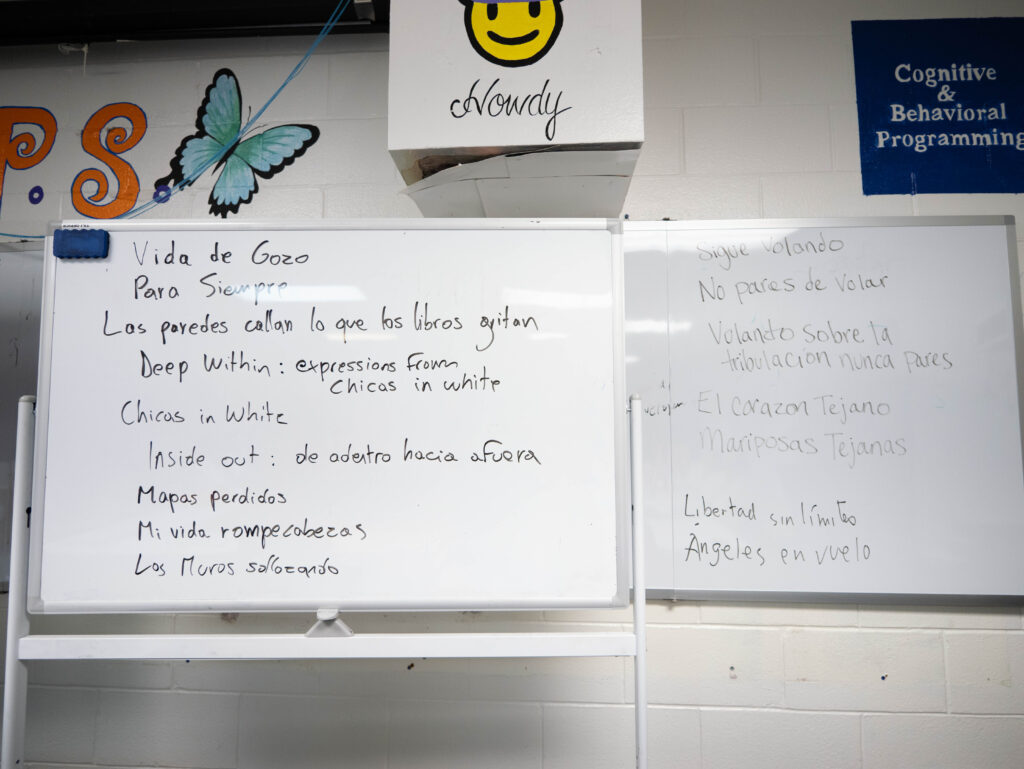 P.S
Howdy
Cognitive
&
Behavioral
Programming
Vida de Gozo
Para Siempre
Las paredes callan lo que los libros gritan
Deep Within: expressions from
Chicas in white
Chicas in White
Inside out: de adentro hacia afuera
Mapas perdidos
Mi vida rompecabezas
Los Muros sollozando
Sigue Volando
No pares de Volar
Volando sobre la
tribulación nunca pares
El corazon Tejano
Mariposas Tejanas
Libertad sin límites
Ángeles en vuelo